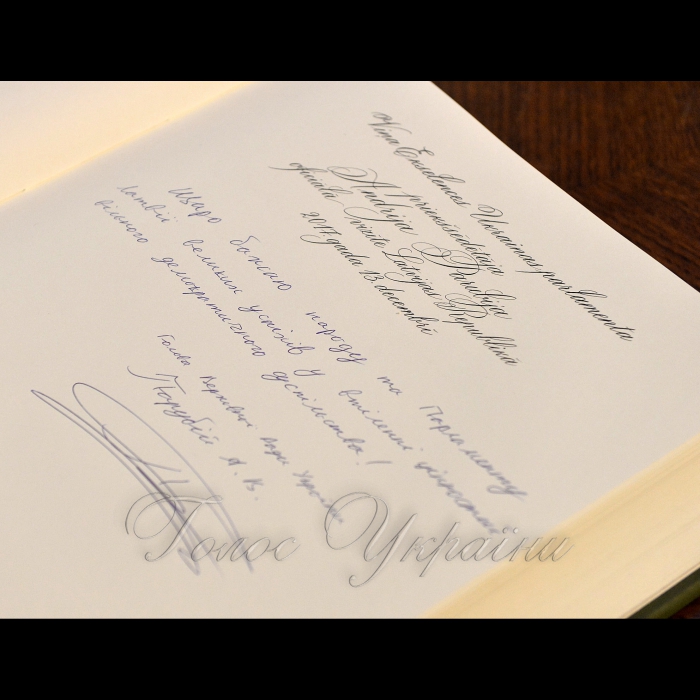 Viņa Ekselences Ukrainas parlamenta
priekšsēdētāja
Andrija Parubija
oficiālā vizīte Latvijas Republikā
2017. gada 13. decembrī
Щиро бажаю народу та Парламенту
Латвії великих успіхів у втіленні цінностей
вільного демократичного суспільства!
Голова Верховної Ради України
Парубій А. В.
Голос України